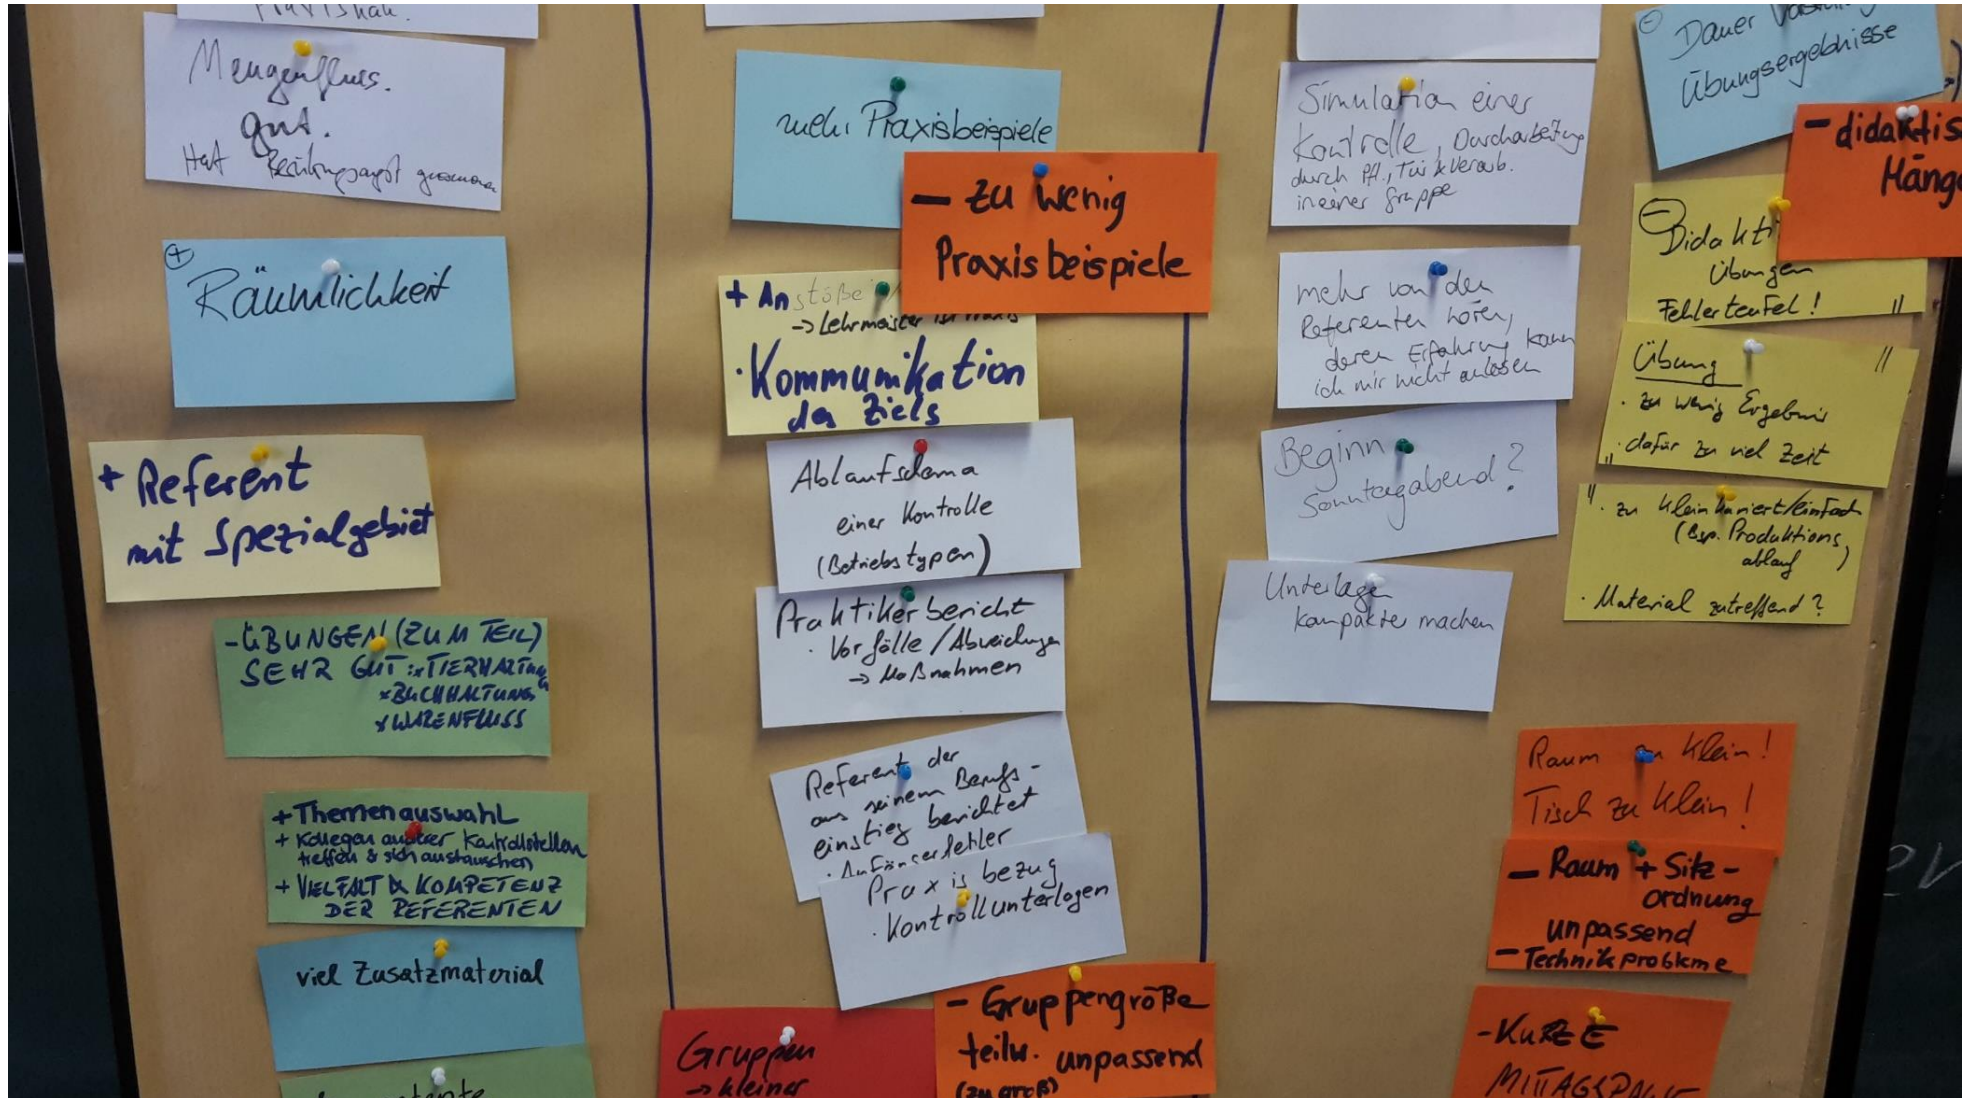 Mengenfluss.
gut.
Hat
+
Räumlichkeit
+ Referent
mit Spezialgebiet
- ÜBUNGEN (ZUM TEIL)
SEHR GUT: * TIERHALTUNG
* BUCHHALTUNG
* WARENFLUSS
+ Themenauswahl
+ Kollegen anderer Kontrollstellen
treffen & sich austauschen
+ VIELFALT & KOMPETENZ
DER REFERENTEN
viel Zusatzmaterial
mehr Praxisbeispiele
- zu wenig
Praxisbeispiele
+ Anstöße
-> Lehrmeister ist Praxis
· Kommunikation
des Ziels
Ablaufschema
einer Kontrolle
(Betriebstypen)
Praktikerbericht
· Vorfälle / Abweichungen
-> Maßnahmen
Referent der
aus seinem Berufs-
einstieg berichtet
· Anfängerfehler
Praxisbezug
· Kontrollunterlagen
Gruppen
-> kleiner
- Gruppengröße
teilw. unpassend
(zu groß)
Simulation einer
Kontrolle, Durcharbeitung
durch Pfl., Tier & Verarb.
in einer Gruppe
mehr von den
Referenten hören,
deren Erfahrung kann
ich mir nicht anlesen
Beginn
Sonntagabend?
Unterlagen
kompakter machen
- Dauer
Übungsergebnisse
- didaktis
Mäng
- Didakti
Übungen
Fehlerteufel! "
Übung "
· zu wenig Ergebnis
" · dafür zu viel Zeit
" · zu kleinkariert/einfach
(bsp. Produktions
ablauf)
· Material zutreffend?
Raum zu klein!
Tisch zu klein!
- Raum + Sitz-
ordnung
unpassend
- Technikprobleme
- KURZE
MITTAGSPAUSE